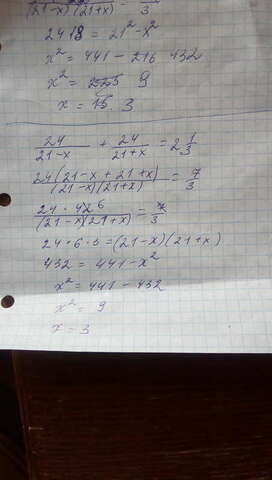 (21-x)(21+x) = 3
24 18 = 21² - x²
x² = 441 - 216 432
x² = 225 9
x = 15 3
24/(21-x) + 24/(21+x) = 2 1/3
24(21-x + 21+x)/((21-x)(21+x)) = 7/3
24 · 42 6/((21-x)(21+x)) = 7/3
24 · 6 · 3 = (21-x)(21+x)
432 = 441 - x²
x² = 441 - 432
x² = 9
x = 3